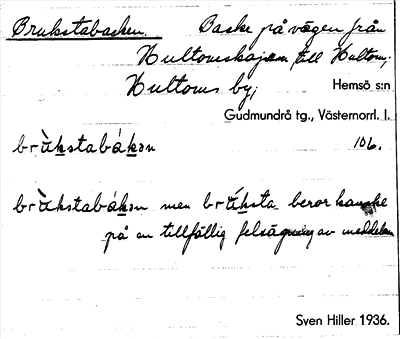 Brukstabacken. Backe på vägen från
Hultomskajen till Hultom;
Hultoms by; Hemsö s:n
Gudmundrå tg., Västernorrl. l.
brùkstabákən 106.
brùkstabákən men brúksta beror kanske
på en tillfällig felsägning av meddelaren
Sven Hiller 1936.